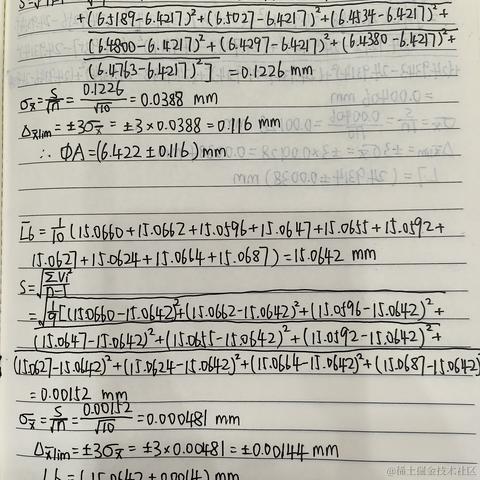 +(6.5189-6.4217)²+(6.5027-6.4217)²+(6.4534-6.4217)²+
(6.4800-6.4217)²+(6.4297-6.4217)²+(6.4380-6.4217)²+
(6.4763-6.4217)²] =0.1226 mm
σx̄=S/√n=0.1226/√10=0.0388 mm
Δx̄lim=±3σx̄=±3×0.0388=0.116 mm
∴ ΦA=(6.422±0.116)mm
L̄6=1/10(15.0660+15.0662+15.0596+15.0647+15.0655+15.0592+
15.0627+15.0624+15.0664+15.0687)=15.0642 mm
S=√(ΣVi²/(n-1))
=√(1/9[(15.0660-15.0642)²+(15.0662-15.0642)²+(15.0596-15.0642)²+
(15.0647-15.0642)²+(15.0655-15.0642)²+(15.0592-15.0642)²+
(15.0627-15.0642)²+(15.0624-15.0642)²+(15.0664-15.0642)²+(15.0687-15.0642)
=0.00152 mm
σx̄=S/√n=0.00152/√10=0.000481 mm
Δx̄lim=±3σx̄=±3×0.00481=±0.00144mm
L6=(15.0642±0.0014)mm
@稀土掘金技术社区